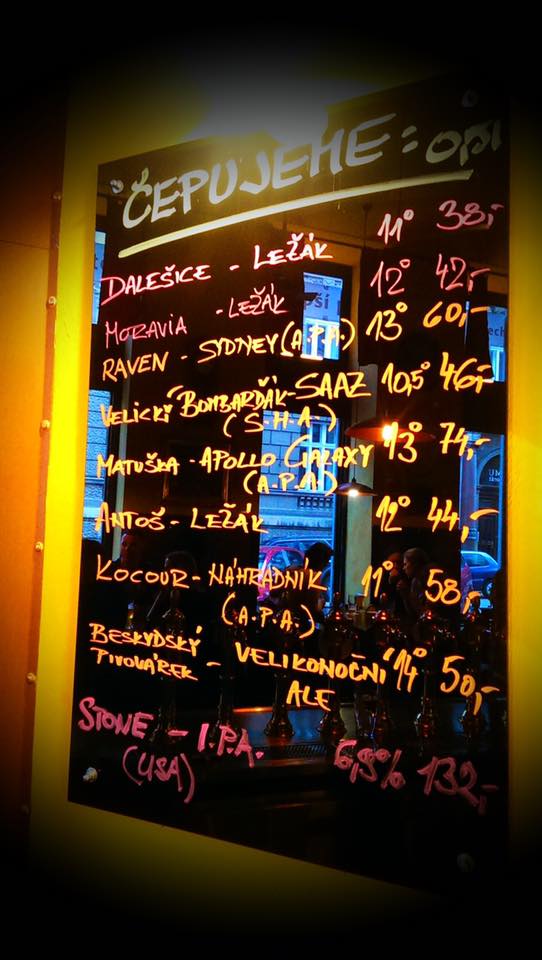 ČEPUJEME: 0,5l
DALEŠICE - LEŽÁK 11° 38,-
MORAVIA - LEŽÁK 12° 42,-
RAVEN - SYDNEY (A.P.A.) 13° 60,-
VELICKÝ BOMBARĎÁK - SAAZ 10,5° 46,-
(S.H.A.)
MATUŠKA - APOLLO GALAXY 13° 74,-
(A.P.A)
ANTOŠ - LEŽÁK 12° 44,-
KOCOUR - NÁHRADNÍK 11° 58,-
(A.P.A.)
BESKYDSKÝ
PIVOVÁREK - VELIKONOČNÍ 14° 50,-
ALE
STONE - I.P.A. 6,9% 132,-
(USA)